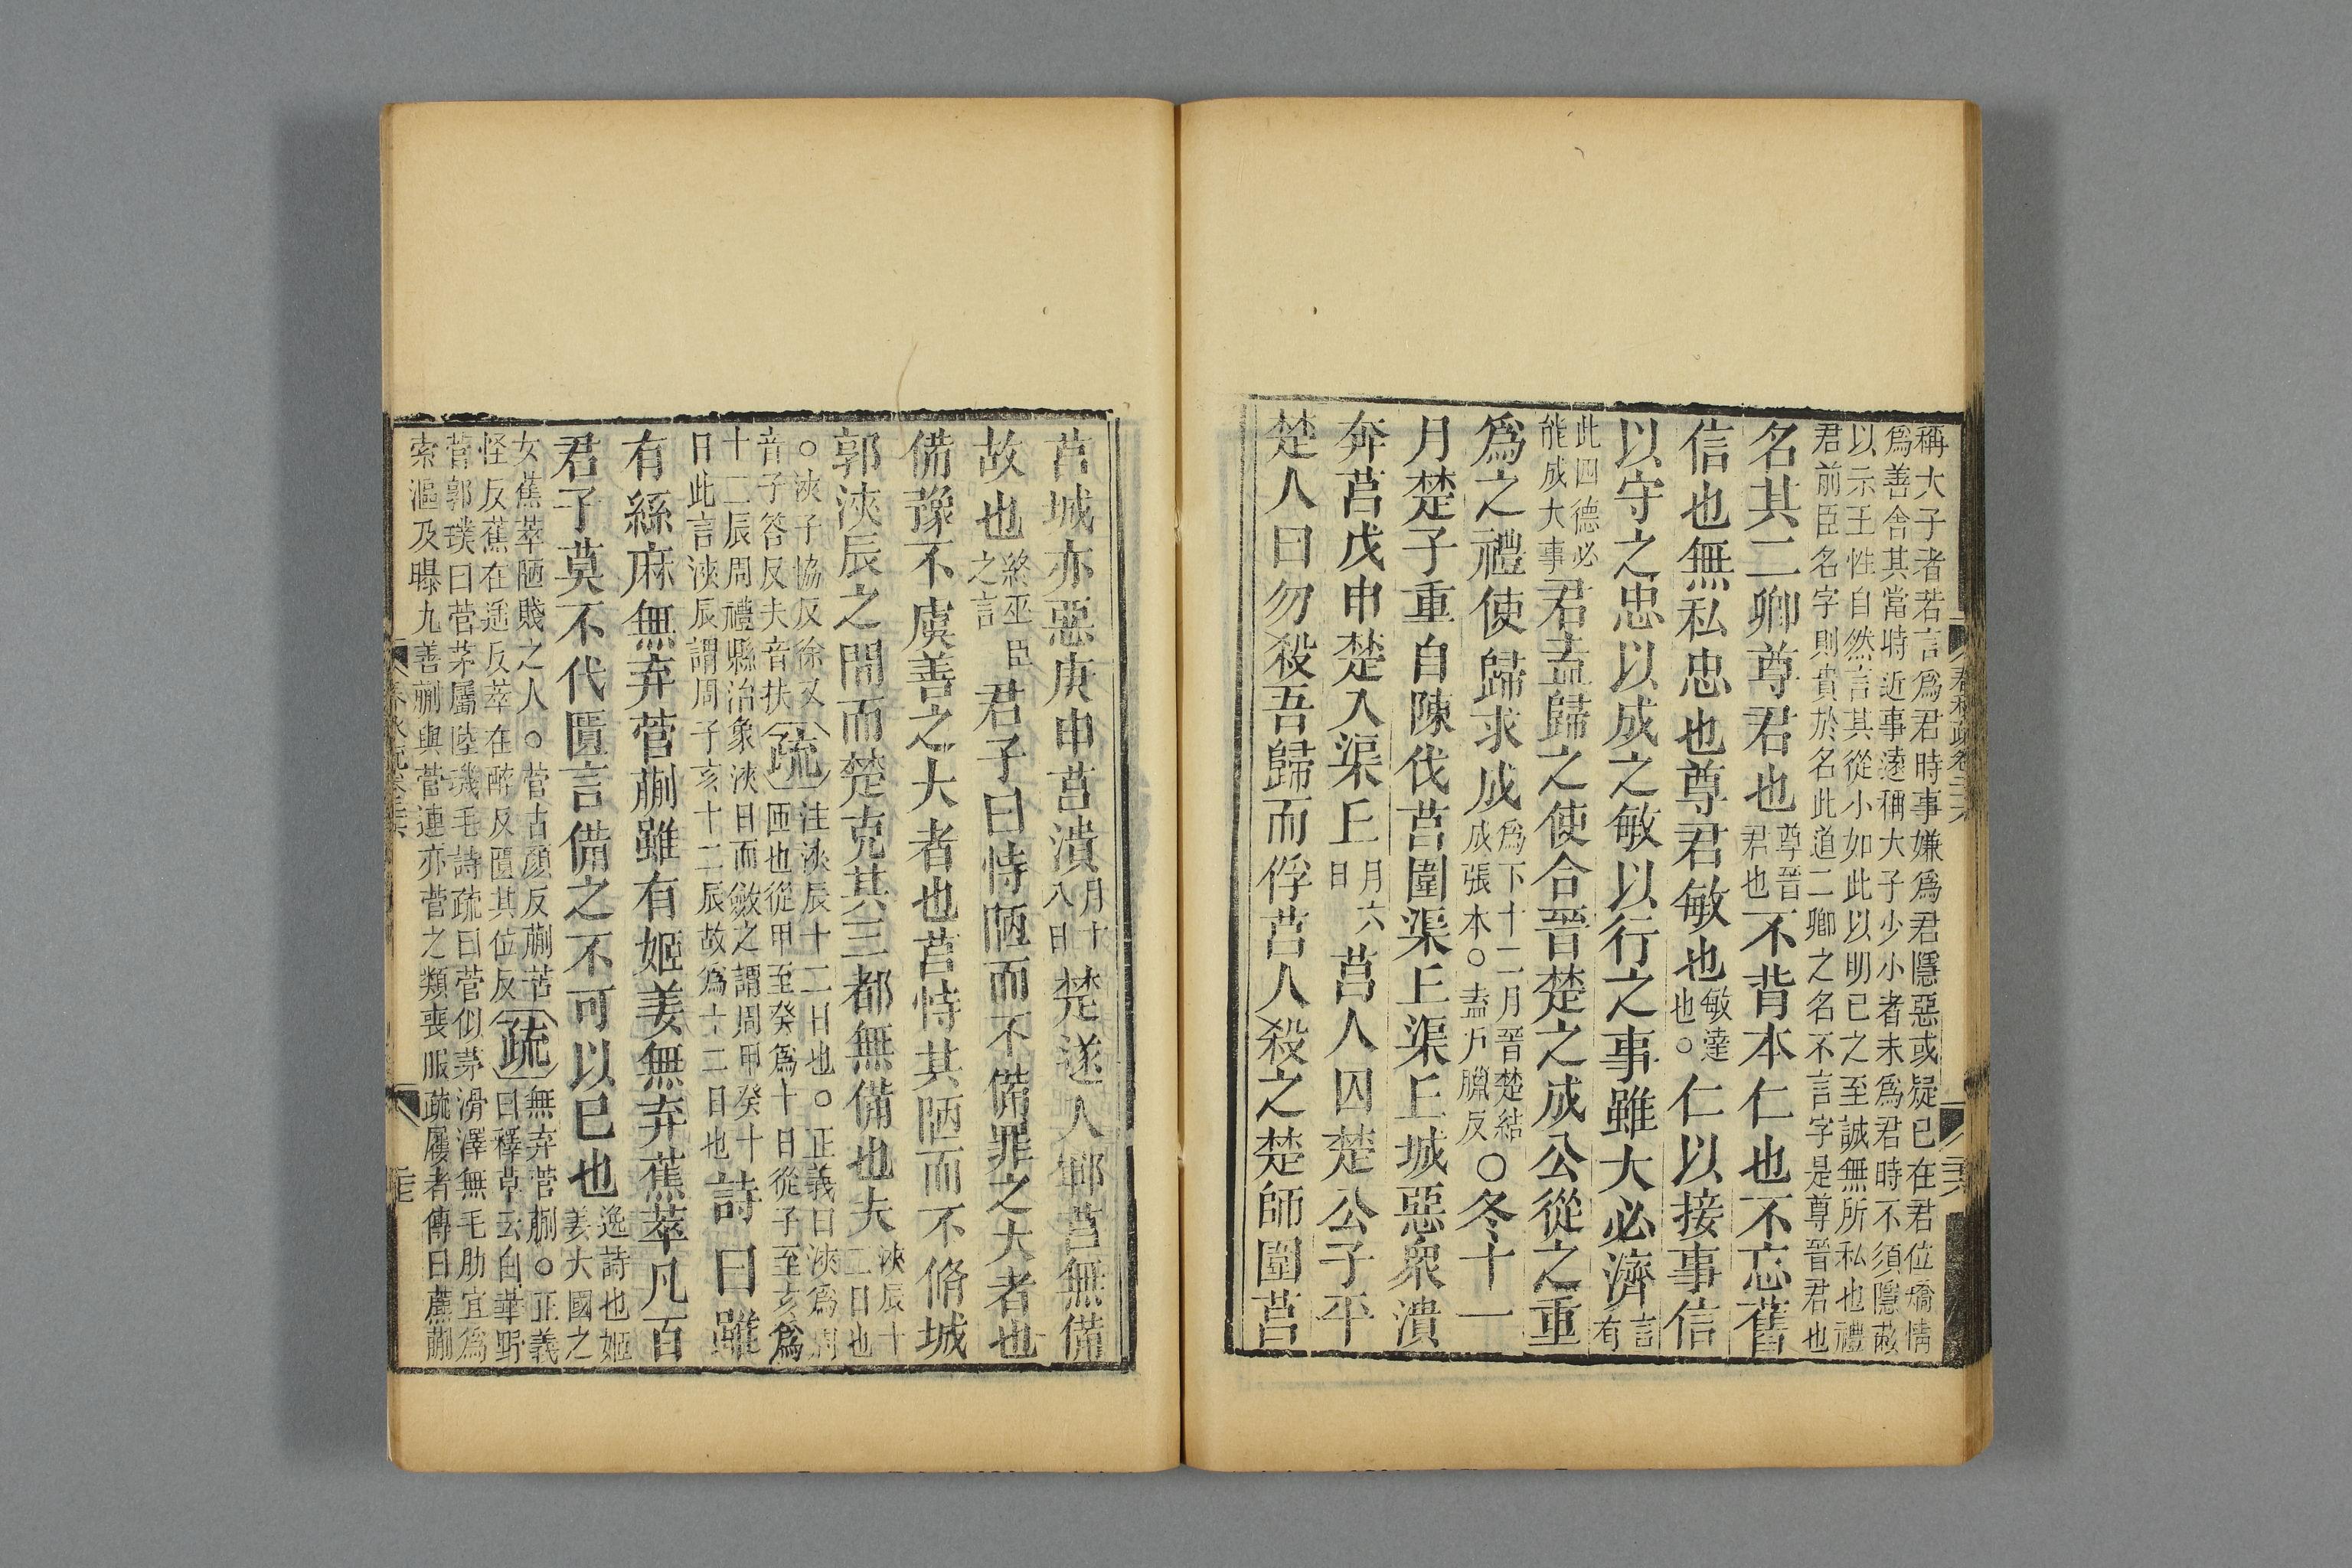 稱大子者若言爲君時事嫌爲君隱惡或疑已在君位矯情
爲善舍其當時近事遠稱大子少小者未爲君時不須隱蔽
以示王性自然言其從小如此以明已之至誠無所私也禮
君前臣名字則貴於名此道二卿之名不言字是尊晉君也
名其二卿尊君也尊晉君也不背本仁也不忘舊
信也無私忠也尊君敏也敏達也○仁以接事信
以守之忠以成之敏以行之事雖大必濟言有
此四德必能成大事君盍歸之使合晉楚之成公從之重
爲之禮使歸求成爲下十二月晉楚結成張本○盍戶臘反○冬十一
月楚子重自陳伐莒圍渠丘渠丘城惡衆潰
奔莒戊申楚入渠丘月六日莒人囚楚公子平
楚人曰勿殺吾歸而俘莒人殺之楚師圍莒
莒城亦惡庚申莒潰月十八日楚遂入鄆莒無備
故也終巫臣之言君子曰恃陋而不備罪之大者也
備豫不虞善之大者也莒恃其陋而不脩城
郭浹辰之閒而楚克其三都無備也夫浹辰十二日也
○浹子協反徐又音子答反夫音扶疏注浹辰十二日也○正義曰浹爲周匝也從甲至癸爲十日從子至亥爲
十二辰周禮縣治象浹日而斂之謂周甲癸十日此言浹辰謂周子亥十二辰故爲十二日也詩曰雖
有絲麻無弃菅蒯雖有姬姜無弃蕉萃凡百
君子莫不代匱言備之不可以已也逸詩也姬姜大國之
女蕉萃陋賤之人○菅古顏反蒯苦怪反蕉在遥反萃在醉反匱其位反疏無弃菅蒯○正義曰釋草云白華野
菅郭璞曰菅茅屬陸璣毛詩疏曰菅似茅滑澤無毛肋宜爲
索漚及曝尢善蒯與菅連亦菅之類喪服疏屨者傳曰藨蒯